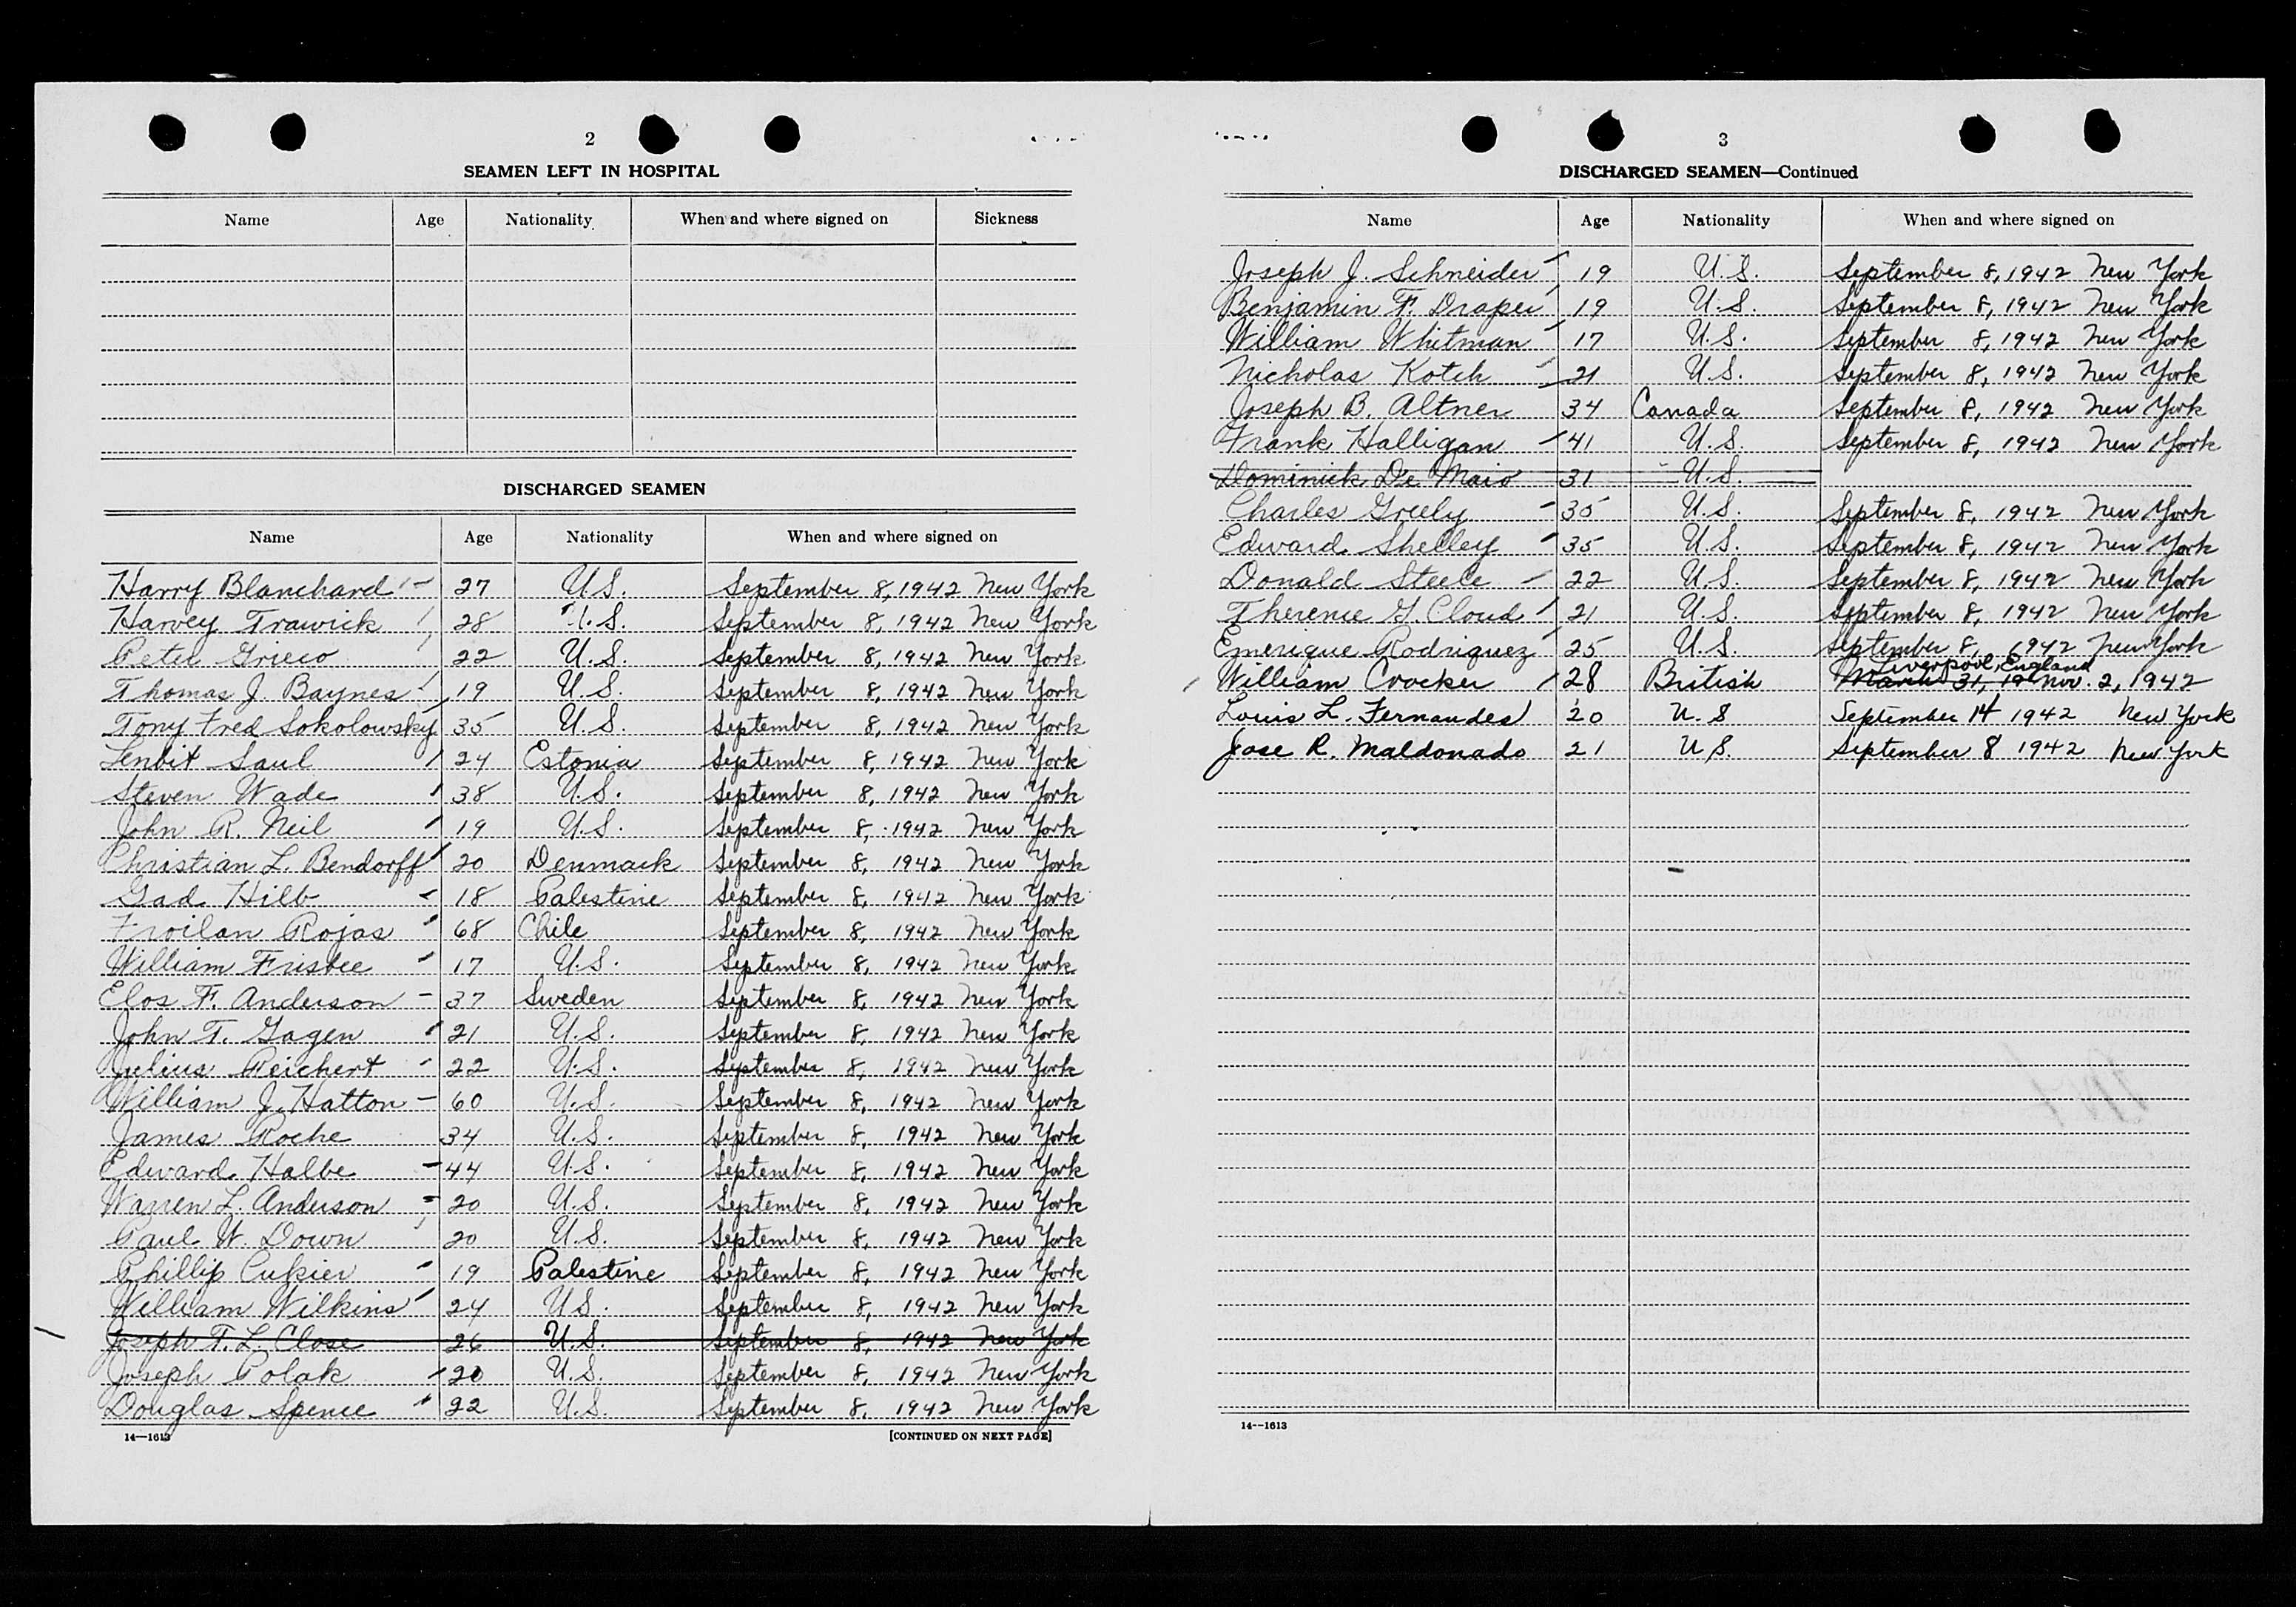 2
SEAMEN LEFT IN HOSPITAL
Name Age Nationality When and where signed on Sickness
DISCHARGED SEAMEN
Name Age Nationality When and where signed on
Harry Blanchard 27 U.S. September 8, 1942 New York
Harvey Trawick 28 U.S. September 8, 1942 New York
Peter Grieco 22 U.S. September 8, 1942 New York
Thomas J. Baynes 19 U.S. September 8, 1942 New York
Tony Fred Sokolowsky 35 U.S. September 8, 1942 New York
Lenbit Saul 24 Estonia September 8, 1942 New York
Steven Wade 38 U.S. September 8, 1942 New York
John R. Neil 19 U.S. September 8, 1942 New York
Christian L. Bendorff 20 Denmark September 8, 1942 New York
Gad Hilb 18 Palestine September 8, 1942 New York
Froilan Rojas 68 Chile September 8, 1942 New York
William Frisbee 17 U.S. September 8, 1942 New York
Elos F. Anderson 37 Sweden September 8, 1942 New York
John T. Gagen 21 U.S. September 8, 1942 New York
Julius Reichert 22 U.S. September 8, 1942 New York
William J. Hatton 60 U.S. September 8, 1942 New York
James Roche 34 U.S. September 8, 1942 New York
Edward Halbe 44 U.S. September 8, 1942 New York
Warren L. Anderson 20 U.S. September 8, 1942 New York
Paul W. Down 20 U.S. September 8, 1942 New York
Phillip Cukier 19 Palestine September 8, 1942 New York
William Wilkins 24 U.S. September 8, 1942 New York
Joseph T. L. Close 26 U.S. September 8, 1942 New York
Joseph Polak 20 U.S. September 8, 1942 New York
Douglas Spence 22 U.S. September 8, 1942 New York
14—1613 [CONTINUED ON NEXT PAGE]
3
DISCHARGED SEAMEN—Continued
Name Age Nationality When and where signed on
Joseph J. Schneider 19 U.S. September 8, 1942 New York
Benjamin F. Draper 19 U.S. September 8, 1942 New York
William Whitman 17 U.S. September 8, 1942 New York
Nicholas Kotch 21 U.S. September 8, 1942 New York
Joseph B. Altner 34 Canada September 8, 1942 New York
Frank Halligan 41 U.S. September 8, 1942 New York
Dominick De Maio 31 U.S.
Charles Greely 30 U.S. September 8, 1942 New York
Edward Shelley 35 U.S. September 8, 1942 New York
Donald Steele 22 U.S. September 8, 1942 New York
Therence G. Cloud 21 U.S. September 8, 1942 New York
Emerique Rodriquez 25 U.S. September 8, 1942 New York
Liverpool, England
William Crocker 28 British March 31, 19 Nov. 2, 1942
Louis L. Fernandes 20 U.S September 14 1942 New York
Jose R. Maldonado 21 U.S. September 8 1942 New York
14--1613